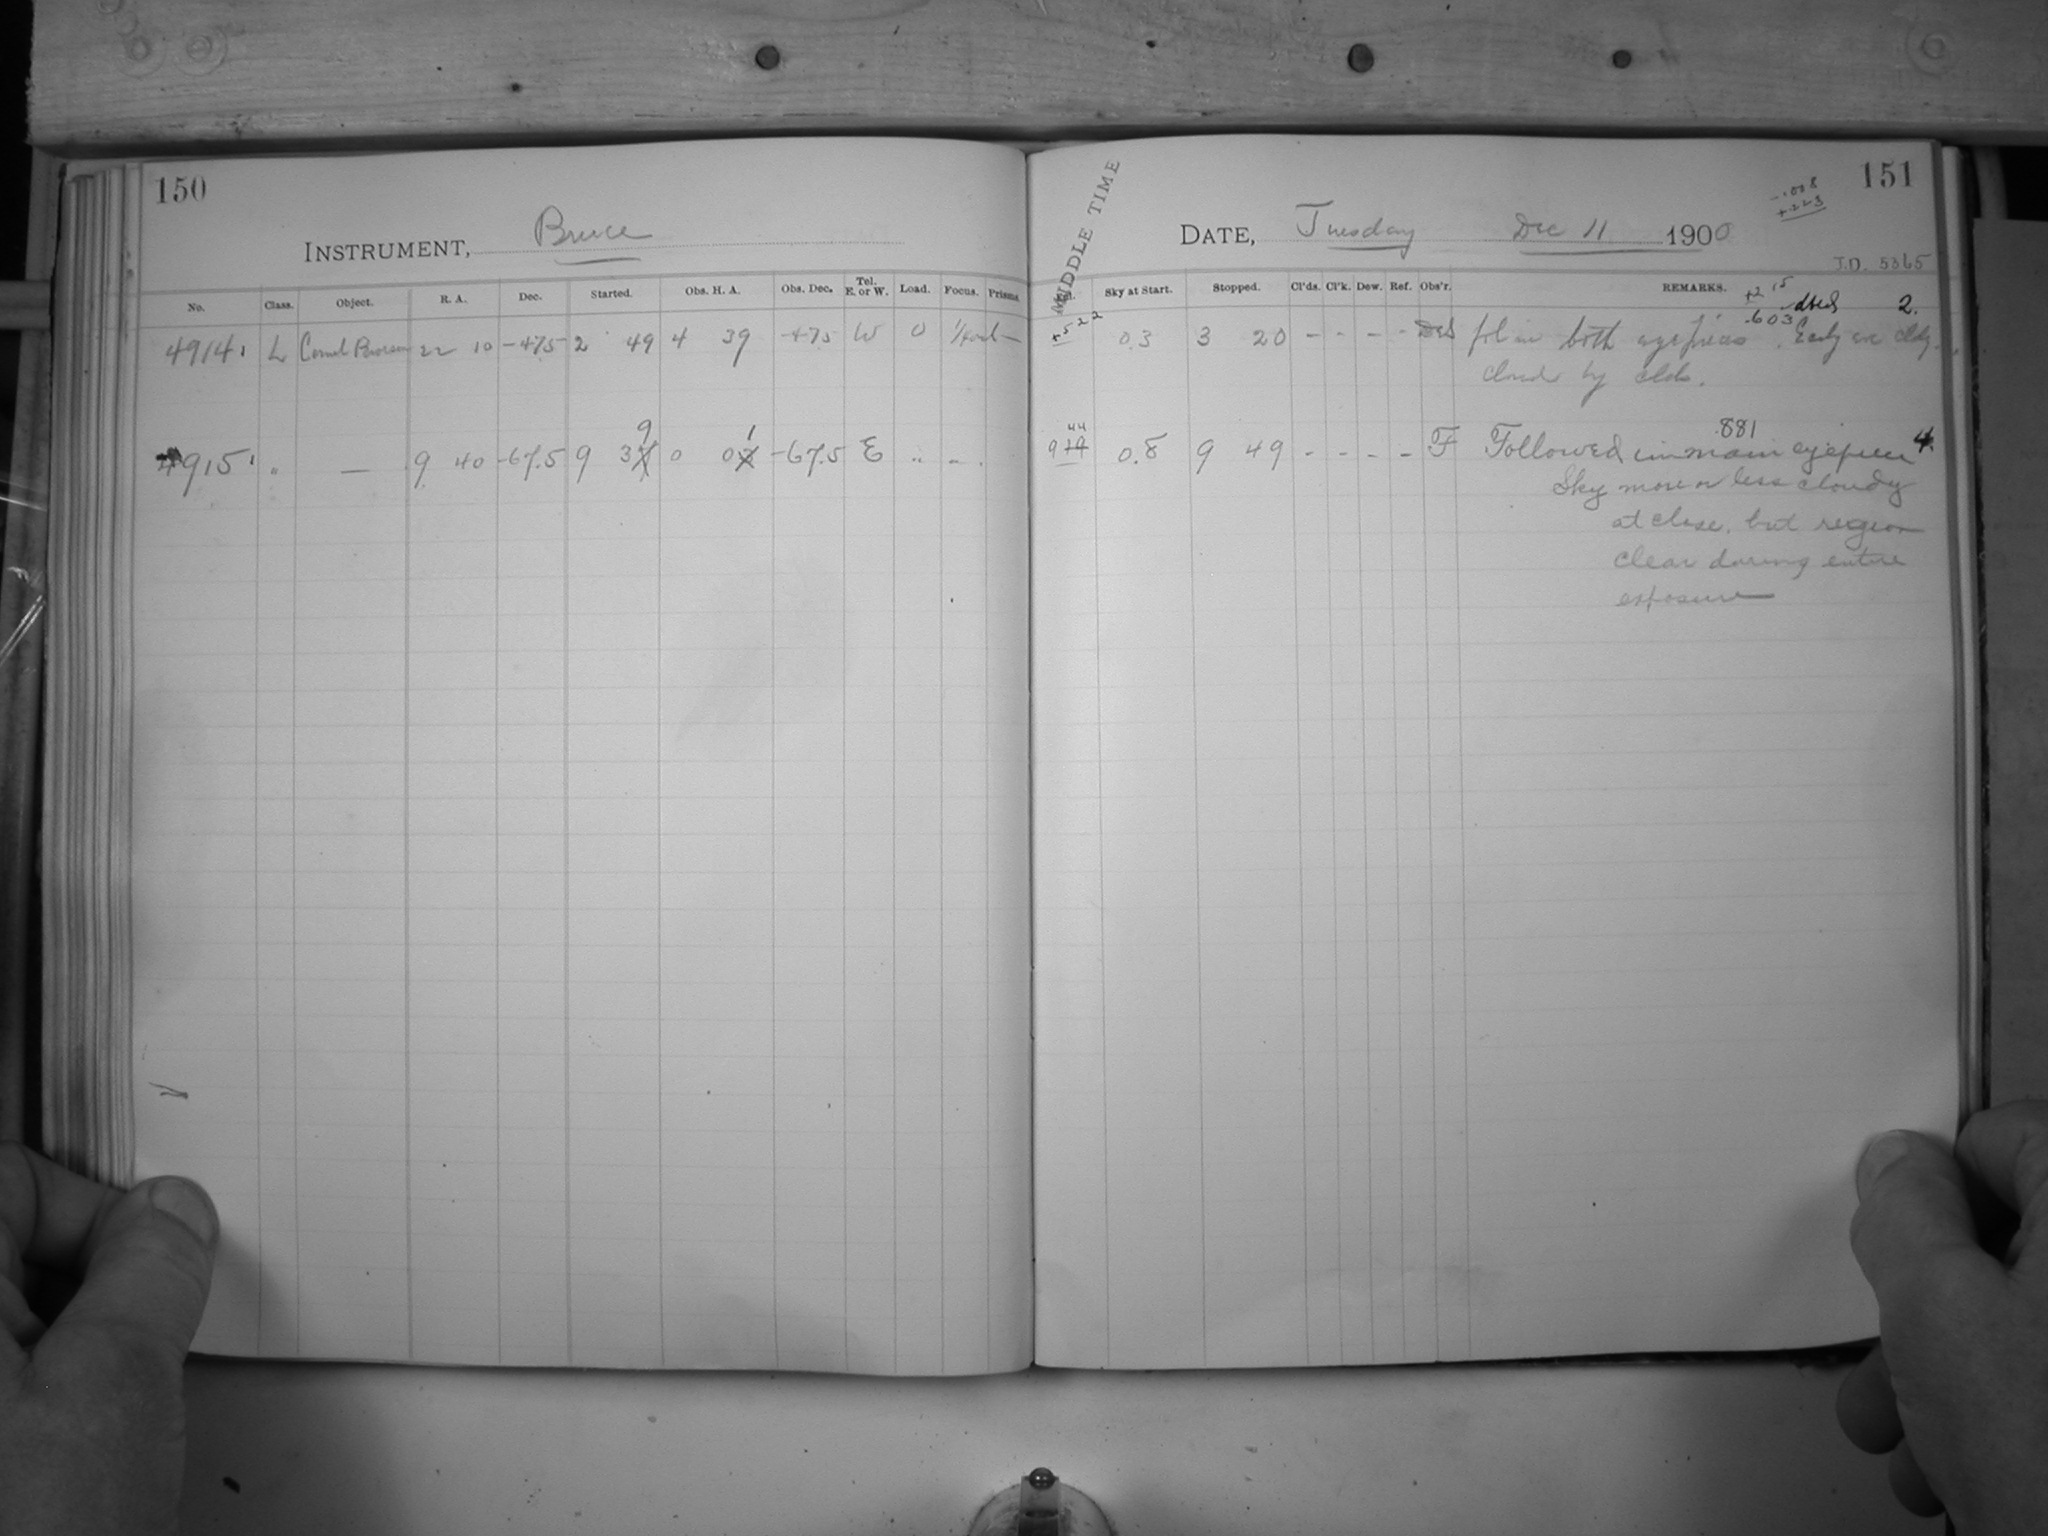 150
INSTRUMENT, Bruce
No. Class. Object. R. A. Dec. Started. Obs. H. A. Obs. Dec. Tel. E. or W. Load. Focus. Prisms
4914 L 22 10 -47.5 2 49 4 39 -47.5 W 0
4915 " — 9 40 -67.5 9 39 0 01 -67.5 E " - .
MIDDLE TIME
151
-.008
+.223
DATE, Tuesday Dec 11 1900
J.D. 5365
Sky at Start. Stopped. Cl'ds. Cl'k. Dew. Ref. Obs'r. REMARKS.
+2 15
.603 2.
+5 22 0.3 3 20 - - - - fol in both eyepieces. Early eve cldy.
Closed by clds.
44 .881
9 19 0.8 9 49 - - - - F Followed in main eyepiece 4
Sky more or less cloudy
at close, but region
clear during entire
exposure